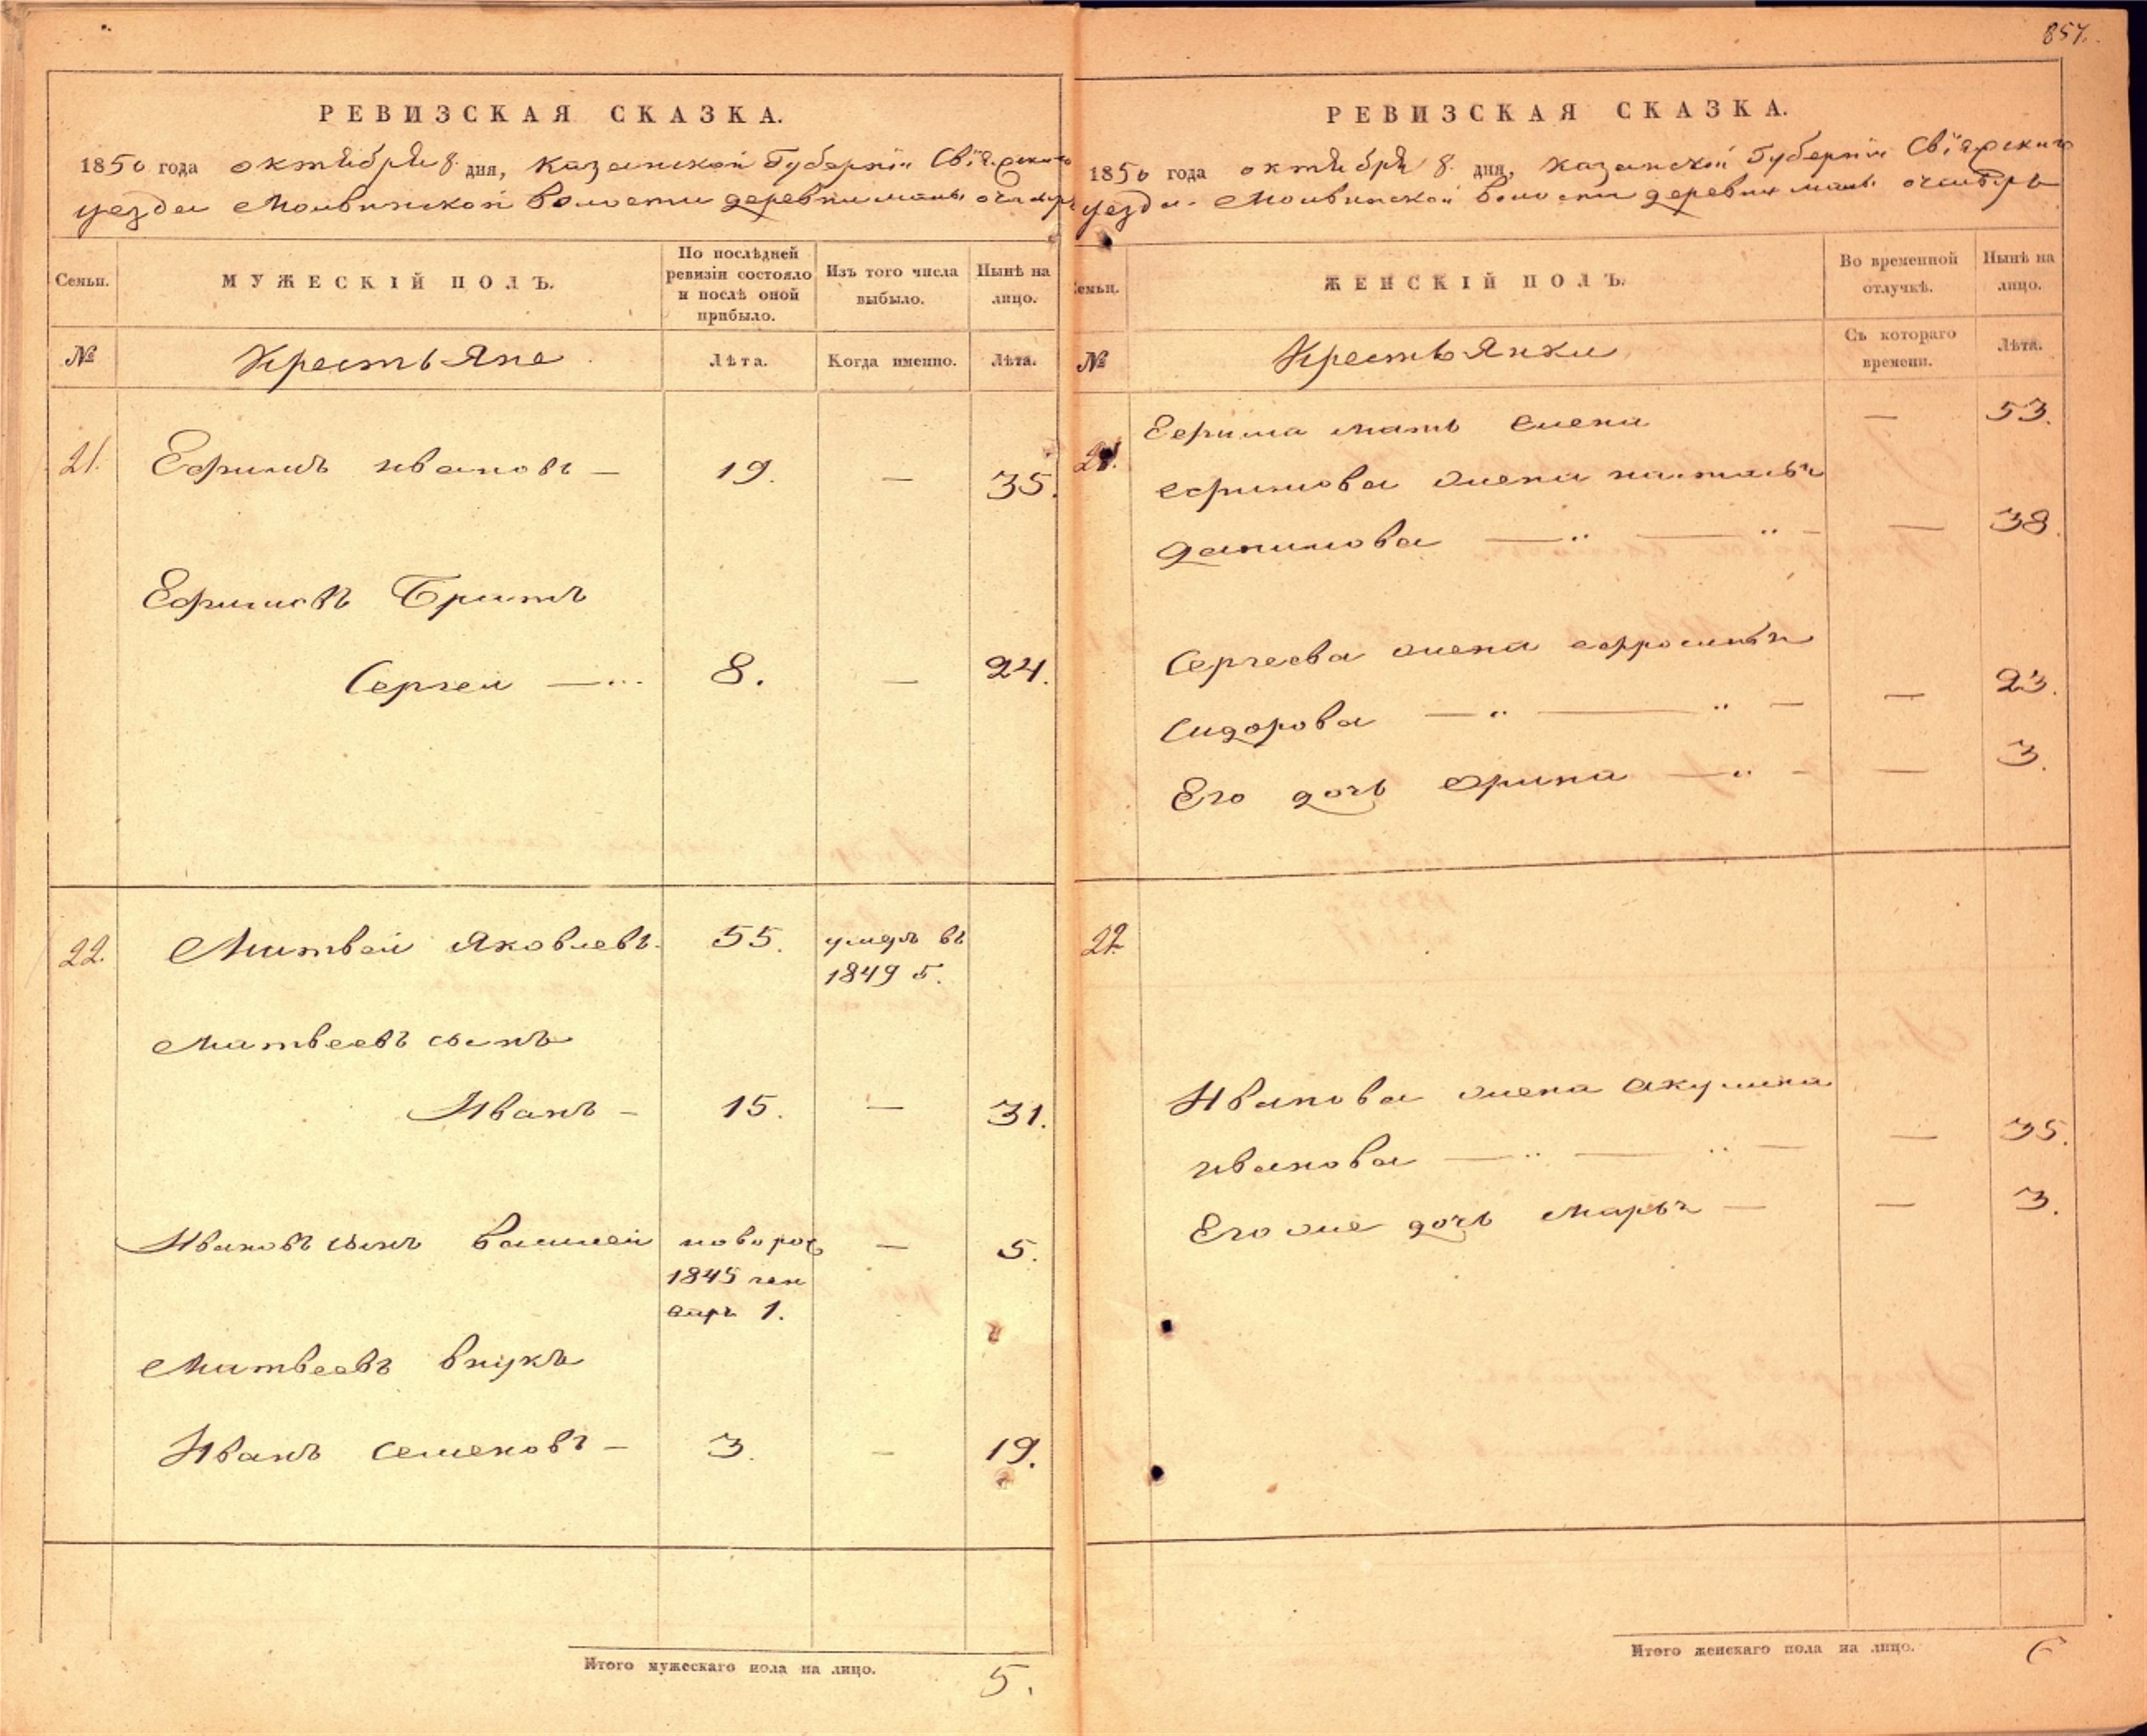 857.
РЕВИЗСКАЯ СКАЗКА.
1850 года октября 8 дня, Казанской Губернiи Свiяжскаго
уезда Молвинской волости деревни малы очакирь
Семьи.
МУЖЕСКІЙ ПОЛЪ.
По послѣдней ревизіи состояло и послѣ оной прибыло.
Изъ того числа выбыло.
Нынѣ на лицо.
№
Крестьяне
Лѣта.
Когда именно.
Лѣта.
21. Ефимъ ивановъ — 19. — 35.
Ефимовъ братъ
Сергеи — 8. — 24.
22. Матвей яковлевъ. 55. умеръ въ
1849 г.
матвеевъ сынъ
Иванъ — 15. — 31.
Ивановъ сынъ василей новорож — 5.
1845 ген
варя 1.
Матвеевъ внукъ
Иванъ семеновъ — 3. — 19.
Итого мужескаго пола на лицо. 5.
РЕВИЗСКАЯ СКАЗКА.
1850 года октября 8 дня, Казанской Губернiи Свiяжскаго
уезда Молвинской волости деревни малы
Семьи.
ЖЕНСКІЙ ПОЛЪ.
Во временной отлучкѣ.
Нынѣ на лицо.
№
Крестьянки
Съ котораго времени.
Лѣта.
21. Ефима мать елена — 53.
ефимова жена наталья
данилова — 38.
Сергеева жена ефросинья
сидорова — 23.
Его дочь орина — 3.
22.
Иванова жена акулина
иванова — 35.
Его же дочь марья — — 3.
Итого женскаго пола на лицо. 6